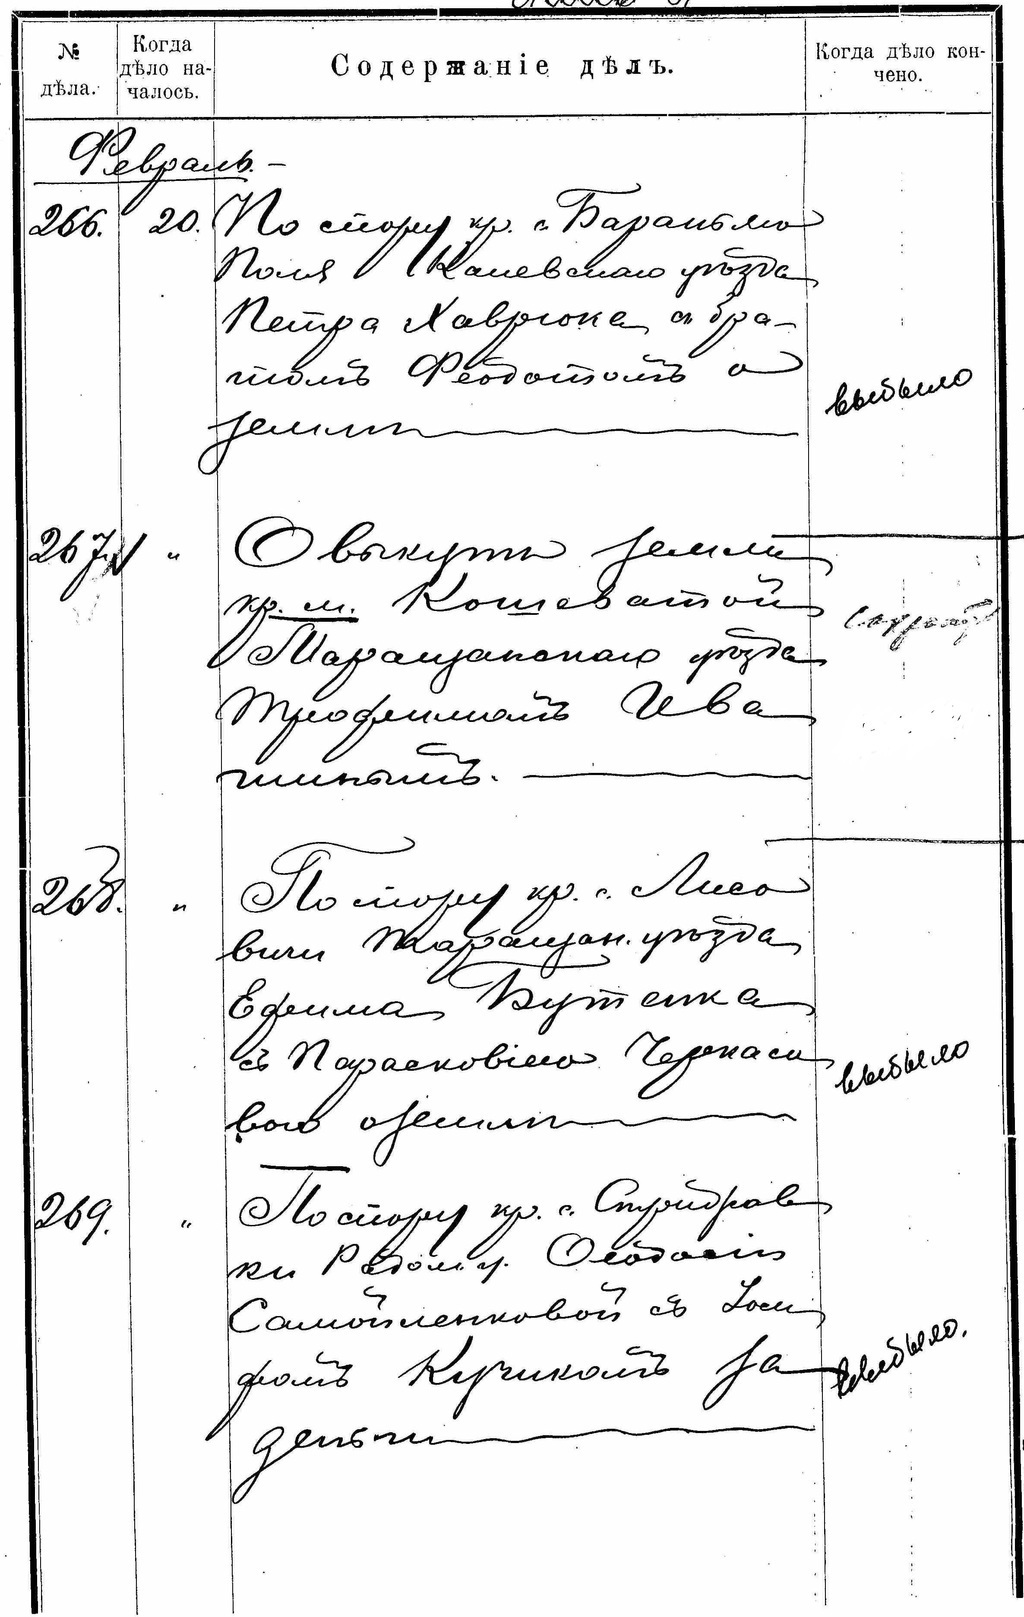 № дѣла.
Когда дѣло началось.
Содержаніе дѣлъ.
Когда дѣло кончено.
Февраль.
266. 20. По спору кр. с. Бараньяго
Поля Каневскаго уѣзда
Петра Хаврюка съ бра-
томъ Феодотомъ о
землѣ
выбыло
267 " О выкупѣ земли
кр. м. Кошеватой
Таращанскаго уѣзда
Трофимомъ Ива
шинымъ.
268. " По спору кр. с. Лисо
вичи Таращан. уѣзда
Ефима Бутенка
съ Парасковіею Черкасо
вою о землѣ
выбыло
269. " По спору кр. с.
ки Радом. у. Ѳеодосіи
Самойленковой съ Іоси
фомъ Кучикомъ за
деньги
выбыло.